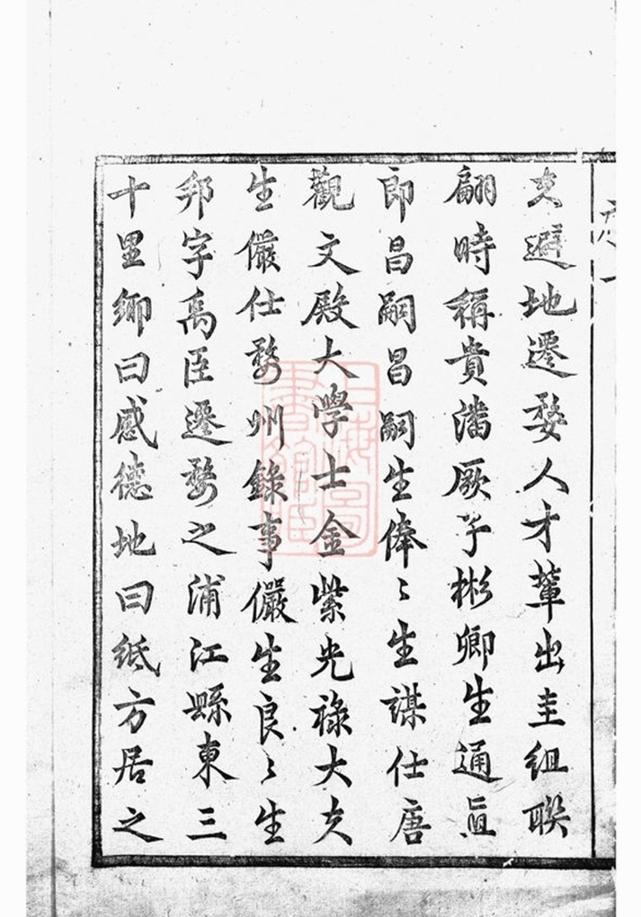 夫避地遷婺人才輩出圭組聯
翩時稱貴潘厥子彬卿生通眞
郎昌嗣昌嗣生俸〻生謀仕唐
觀文殿大學士金紫光祿大夫
生儼仕婺州錄事儼生良〻生
邦字禹臣遷婺之浦江縣東三
十里鄉曰感德地曰紙方居之